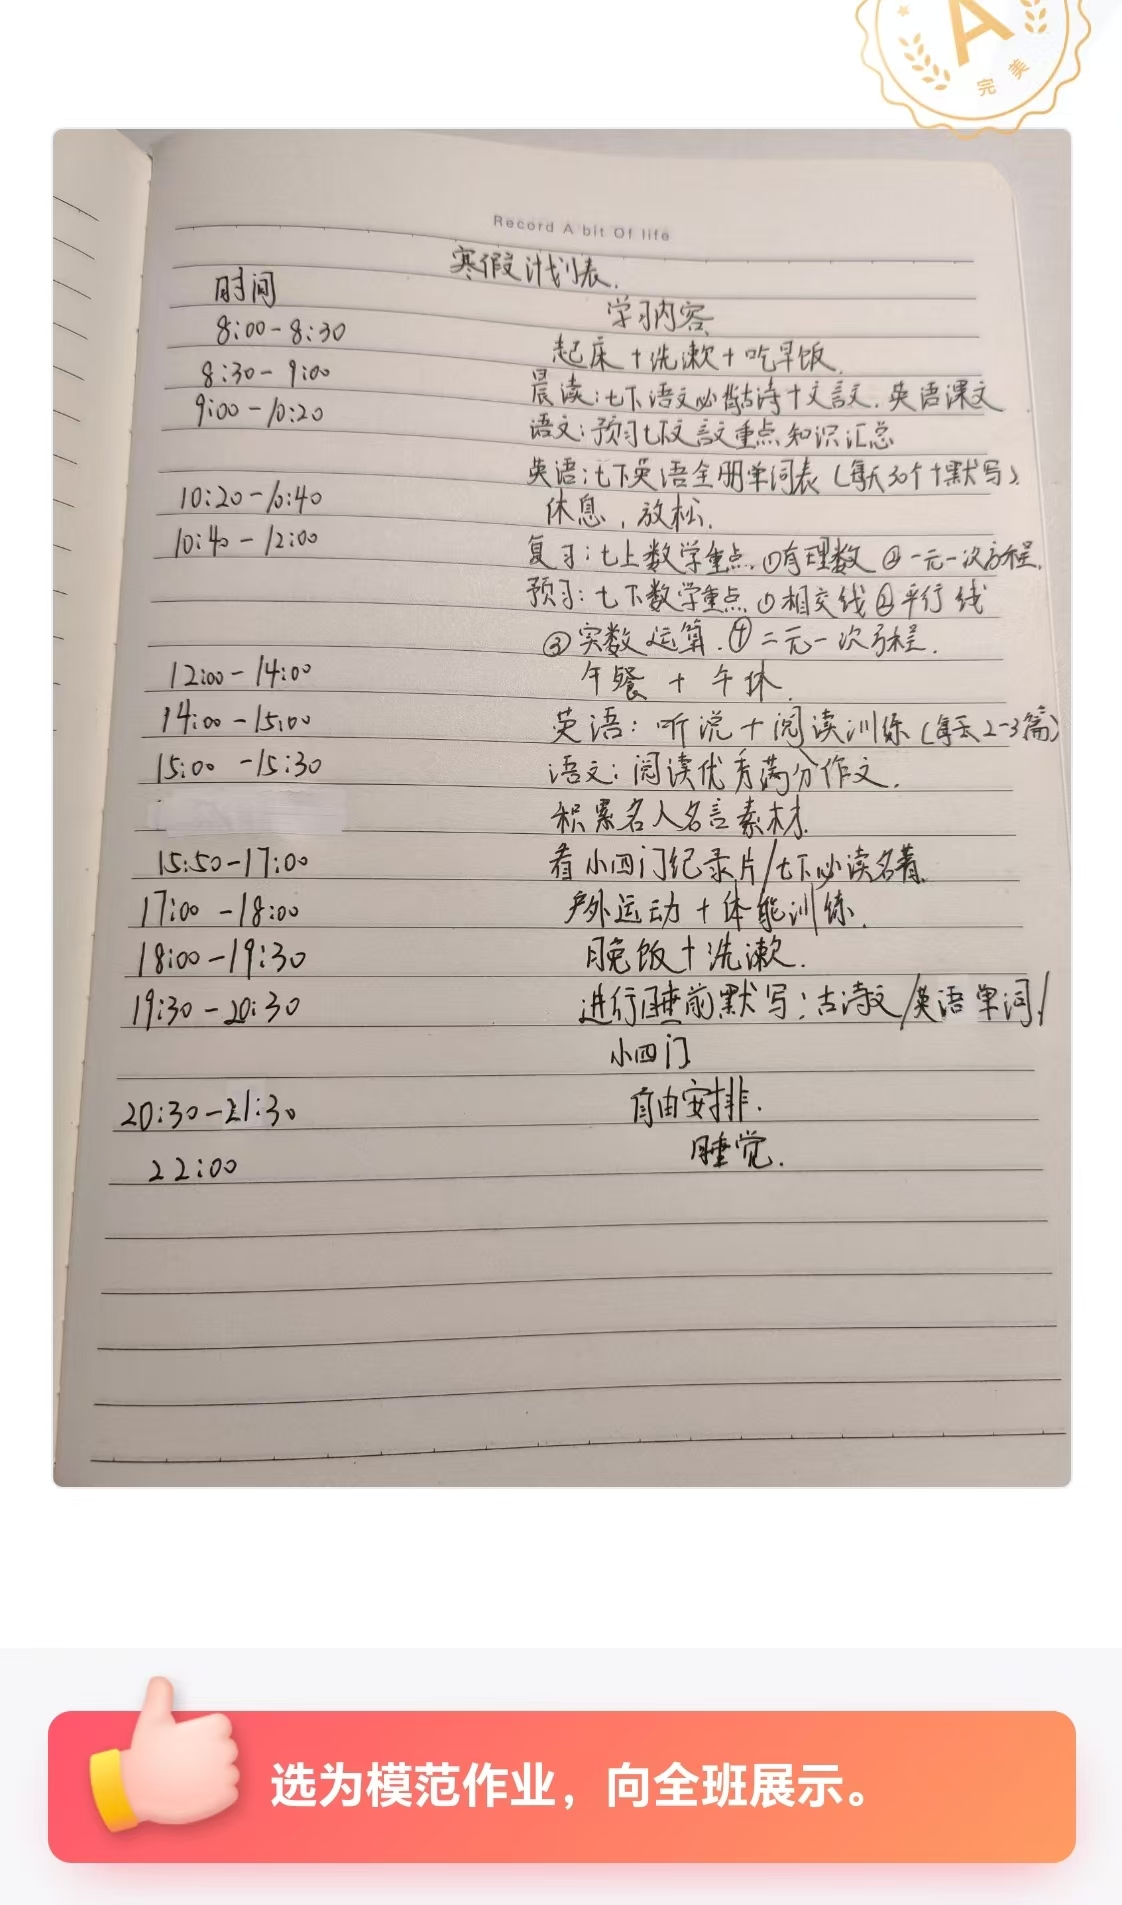 A
完美
Record A bit Of life
寒假计划表.
时间
学习内容
8:00-8:30 起床+洗漱+吃早饭.
8:30-9:00 晨读:七下语文必背古诗+文言文.英语课文
9:00-10:20 语文:预习七下文言文重点知识汇总
英语:七下英语全册单词表(每天30个+默写).
10:20-10:40 休息,放松.
10:40-12:00 复习:七上数学重点.①有理数②一元一次方程.
预习:七下数学重点.①相交线②平行线
③实数运算.④二元一次方程.
12:00-14:00 午餐+午休.
14:00-15:00 英语:听说+阅读训练(每天2-3篇)
15:00-15:30 语文:阅读优秀满分作文.
积累名人名言素材.
15:50-17:00 看小四门纪录片/七下必读名著.
17:00-18:00 户外运动+体能训练.
18:00-19:30 晚饭+洗漱.
19:30-20:30 进行睡前默写:古诗文/英语单词/
小四门
20:30-21:30 自由安排.
22:00 睡觉.
选为模范作业，向全班展示。